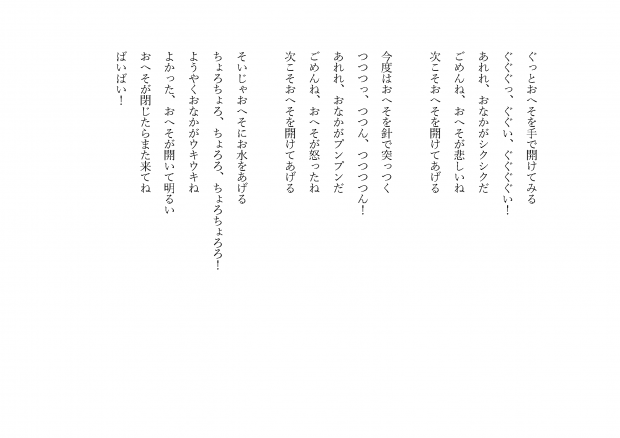 ぐっとおへそを手で開けてみる
ぐぐぐっ、ぐぐい、ぐぐぐい！
あれれ、おなかがシクシクだ
ごめんね、おへそが悲しいね
次こそおへそを開けてあげる
今度はおへそを針で突っつく
つつつっ、つつん、つつつつん！
あれれ、おなかがプンプンだ
ごめんね、おへそが怒ったね
次こそおへそを開けてあげる
そいじゃおへそにお水をあげる
ちょろちょろ、ちょろろ、ちょろちょろろ！
ようやくおなかがウキウキね
よかった、おへそが開いて明るい
おへそが閉じたらまた来てね
ばいばい！